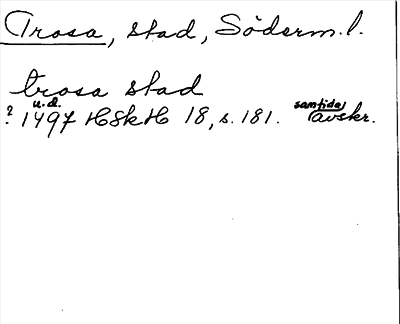 Trosa, stad, Söderm. l.
trosa stad
? u.d. 1497 HSkH 18, s. 181. samtida avskr.